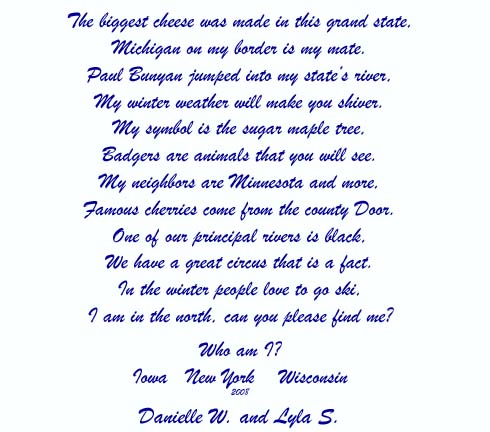 The biggest cheese was made in this grand state,
Michigan on my border is my mate.
Paul Bunyan jumped into my state's river,
My winter weather will make you shiver.
My symbol is the sugar maple tree,
Badgers are animals that you will see.
My neighbors are Minnesota and more,
Famous cherries come from the county Door.
One of our principal rivers is black,
We have a great circus that is a fact.
In the winter people love to go ski,
I am in the north, can you please find me?
Who am I?
Iowa New York Wisconsin
2008
Danielle W. and Lyla S.